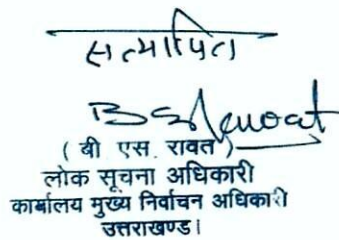 सत्यापित
BSRawat
( बी एस. रावत )
लोक सूचना अधिकारी
कार्यालय मुख्य निर्वाचन अधिकारी
उत्तराखण्ड।